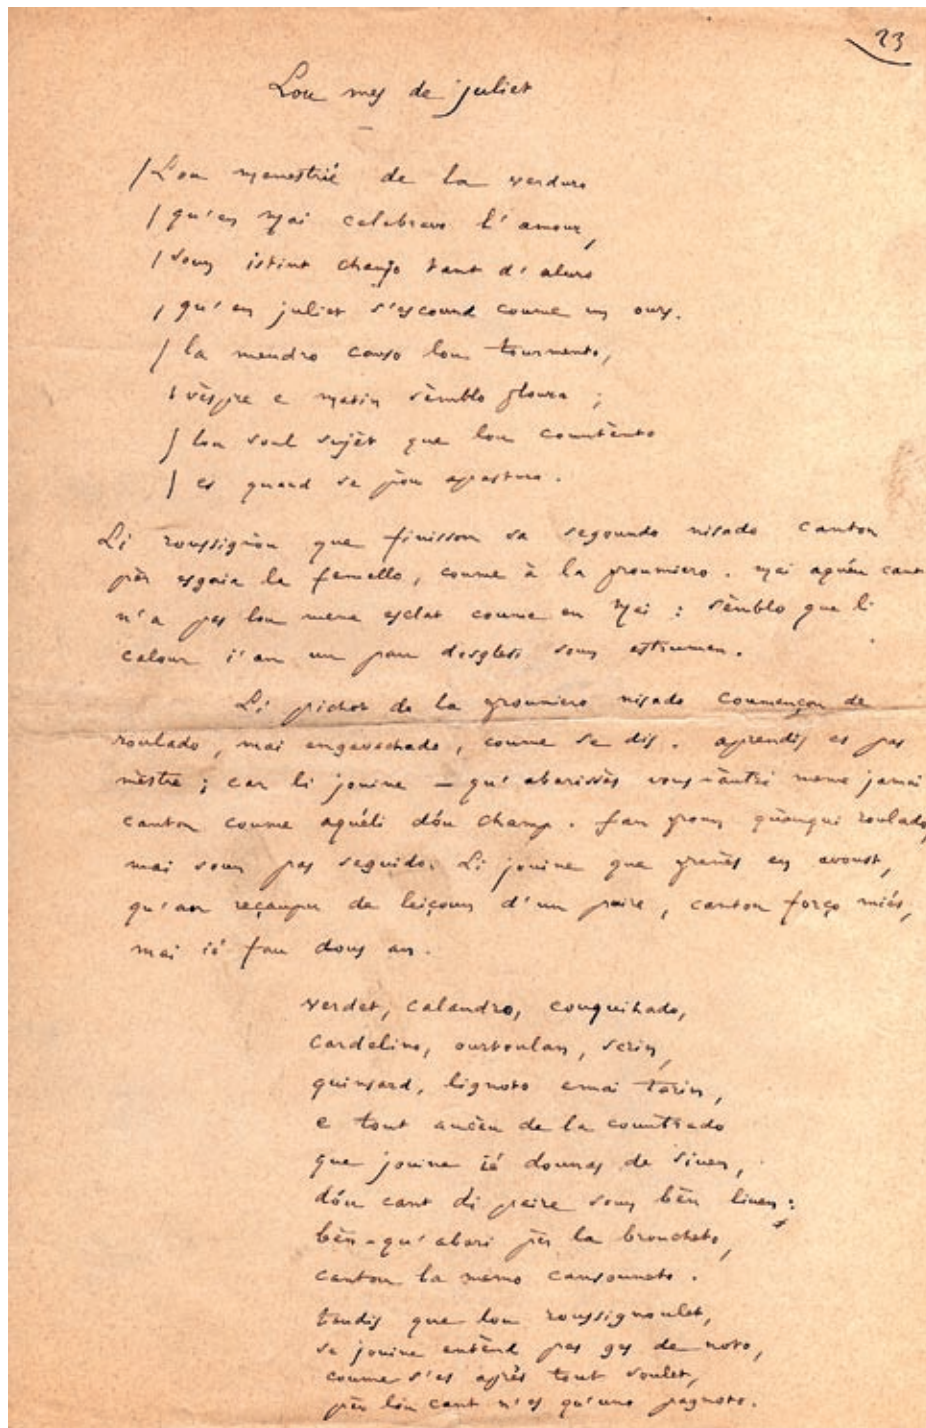 23
Lou mes de juliet
Lou menestrié de la verduro
qu'en mai celebravo l'amour,
soun istint chanjo tant d'aluro
qu'en juliet s'escound coume un ours.
la mendro causo lou tourmento,
vèspre e matin sèmblo ploura ;
lou soul sujèt que lou countènto
es quand se pòu apastura.
Li roussignòu que finisson sa segoundo nisado canton
pèr esgaia la femello, coume à la proumiero. mai aquéu cant
n'a pas lou meme esclat coume en mai : sèmblo que li
calour i'an un pau desglesi soun estrumen.
Li pichot de la proumiero nisado coumençon de
roulado, mai engavachado, coume se dis. aprendis es pas
mèstre ; car li jouine — qu'abarissès vous-àutri meme jamai
canton coume aquéli dóu champ. fan proun quàuqui roulado,
mai soun pas seguido. Li jouine que prenès en avoust,
qu'an reçaupu de leiçoun d'un paire, canton forço miés,
mai ié fau dous an.
verdet, calandro, couquihado,
cardelino, ourtoulan, serin,
quinsard, lignoto emai tarin,
e tout aucèu de la countrado
que jouine ié dounas de siuen,
dóu cant di paire soun bèn liuen :
bèn-qu'abari pèr la broucheto,
canton la memo cansouneto.
tandis que lou roussignoulet,
se jouine entènd pas ges de noto,
coume s'es après tout soulet,
pèr lou cant n'es qu'uno pagnoto.